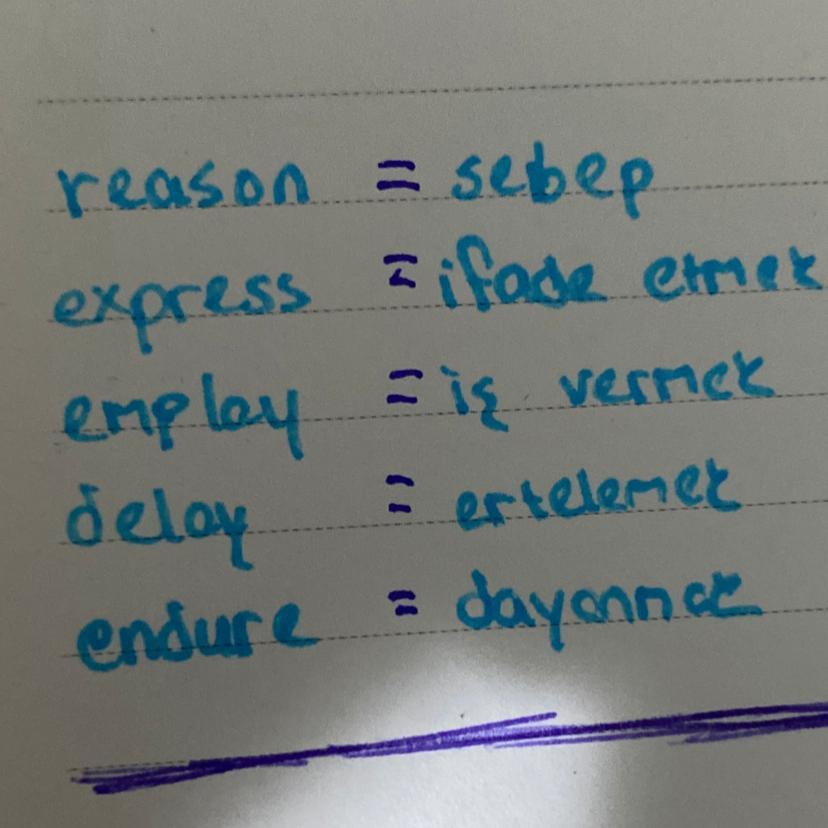 reason = sebep
express = ifade etmek
employ = iş vermek
delay = ertelemek
endure = dayanmak